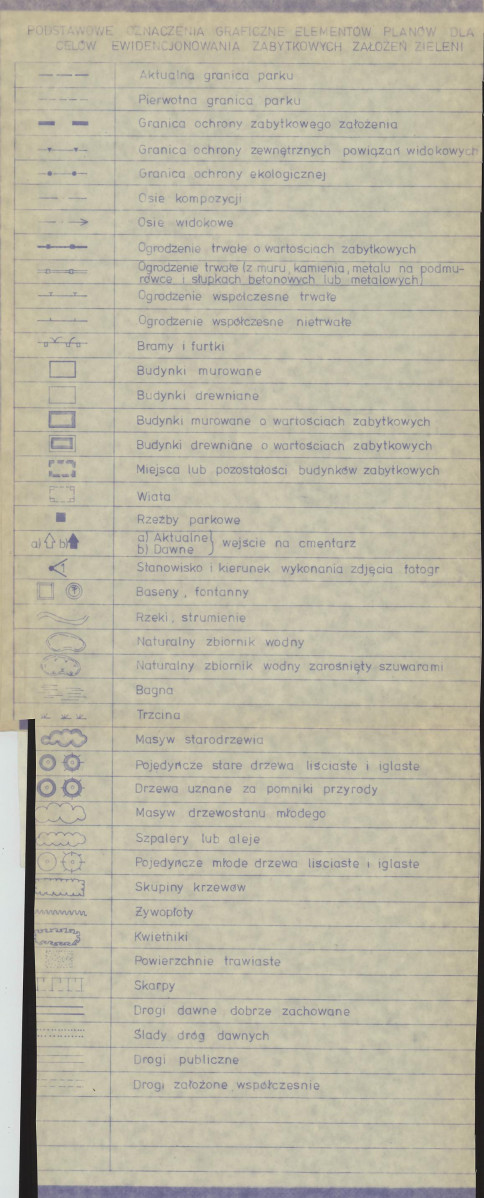 PODSTAWOWE OZNACZENIA GRAFICZNE ELEMENTÓW PLANÓW DLA
CELÓW EWIDENCJONOWANIA ZABYTKOWYCH ZAŁOŻEŃ ZIELENI
Aktualna granica parku
Pierwotna granica parku
Granica ochrony zabytkowego założenia
Granica ochrony zewnętrznych powiązań widokowych
Granica ochrony ekologicznej
Osie kompozycji
Osie widokowe
Ogrodzenie trwałe o wartościach zabytkowych
Ogrodzenie trwałe (z muru, kamienia, metalu na podmu-
rówce i słupkach betonowych lub metalowych)
Ogrodzenie współczesne trwałe
Ogrodzenie współczesne nietrwałe
Bramy i furtki
Budynki murowane
Budynki drewniane
Budynki murowane o wartościach zabytkowych
Budynki drewniane o wartościach zabytkowych
Miejsca lub pozostałości budynków zabytkowych
Wiata
Rzeźby parkowe
a) b) a) Aktualne
b) Dawne } wejście na cmentarz
Stanowisko i kierunek wykonania zdjęcia fotogr
Baseny, fontanny
Rzeki, strumienie
Naturalny zbiornik wodny
Naturalny zbiornik wodny zarośnięty szuwarami
Bagna
Trzcina
Masyw starodrzewia
Pojedyńcze stare drzewa liściaste i iglaste
Drzewa uznane za pomniki przyrody
Masyw drzewostanu młodego
Szpalery lub aleje
Pojedyńcze młode drzewa liściaste i iglaste
Skupiny krzewów
Żywopłoty
Kwietniki
Powierzchnie trawiaste
Skarpy
Drogi dawne dobrze zachowane
Ślady dróg dawnych
Drogi publiczne
Drogi założone współcześnie